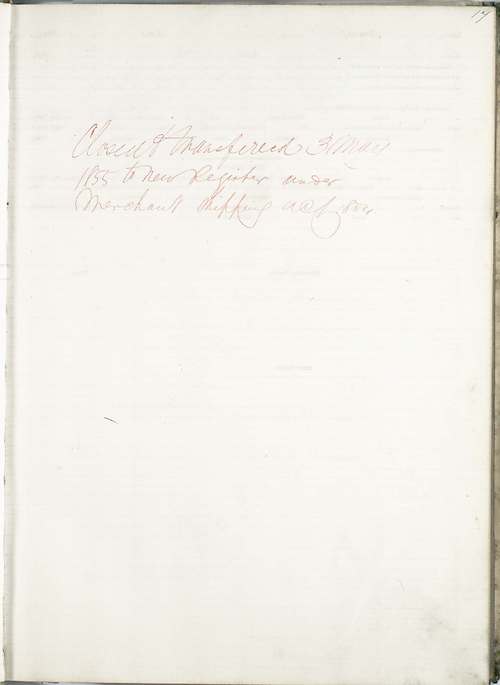 17
Closed & transferred 31 Mar
1855 to new Register under
Merchant Shipping act